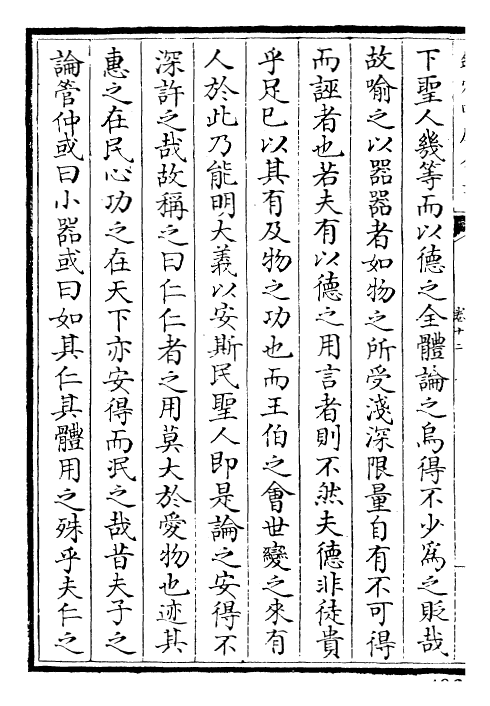 下聖人幾等而以德之全體論之烏得不少為之貶哉
故喻之以器器者如物之所受淺深限量自有不可得
而誣者也若夫有以德之用言者則不然夫德非徒貴
乎足已以其有及物之功也而王伯之會世變之來有
人於此乃能明大義以安斯民聖人即是論之安得不
深許之哉故稱之曰仁仁者之用莫大於愛物也迹其
惠之在民心功之在天下亦安得而泯之哉昔夫子之
論管仲或曰小器或曰如其仁其體用之殊乎夫仁之
卷廿二